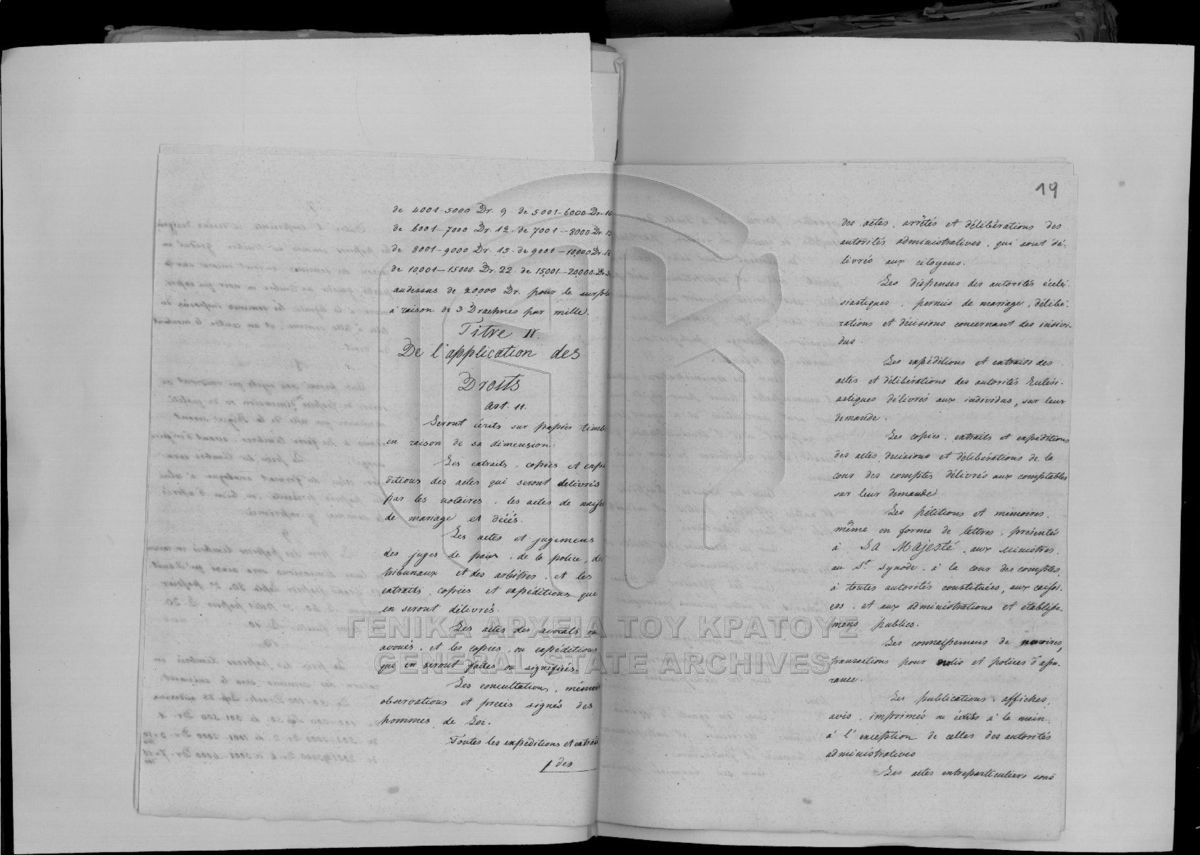 de 4001-5000 Dr. 9 de 5001-6000 Dr.
de 6001-7000 Dr. 12 de 7001-8000 Dr.
de 8001-9000 Dr. 15 de 9001-10000 Dr.
de 10,001-15000 Dr. 22 de 15,001-20,000 Dr.
audessus de 20,000 Dr. pour le surplu
à raison de 3 Drachmes par mille.
Titre II.
De l'application des
Droits
Art. 11.
Seront écrits sur papier timb
en raison de sa dimension.
Les extraits, copies et expé
ditions des actes qui seront délivrés
par les notaires, les actes de naiss
de mariage et décés.
Les actes et jugemens
des juges de paix, de la police, de
tribunaux et des arbitres, et les
extraits, copies et expéditions que
en seront délivrés.
Les actes des avocats
avoués, et les copies, ou expéditions
qui en seront faites ou signifiées.
Les consultations, mémoi
observations et précis signés des
hommes de Loi.
Toutes les expéditions et extrai
des
19
des actes, arrêtés et délibérations des
autorités administratives, qui sont dé-
livrés aux citoyens.
Les dispenses des autorités écclé-
siastiques, permis de mariage, délibé-
rations et décisions concernant des indivi-
dus
Les expéditions et extraits des
actes et délibérations des autorités Ecclési-
astiques délivrés aux individus, sur leur
demande.
Les copies, extraits et expéditions
des actes décisions et délibérations de la
cour des comptes délivrés aux comptables
sur leur demande.
Les pétitions et mémoires,
même en forme de lettres, présentés
à SA MAJESTÉ, aux ministres,
au St. Synode, à la cour des comptes,
à toutes autorités constituées, aux caissi-
ers, et aux administrations et établisse-
mens publics.
Les connaissemens de
transactions pour et polices d'assu-
rance.
Les publications, affiches,
avis, imprimés ou écrits à la main,
à l'exception de celles des autorités
administratives
Les actes entreparticuliers sous
ΓΕΝΙΚΑ ΑΡΧΕΙΑ ΤΟΥ ΚΡΑΤΟΥΣ
GENERAL STATE ARCHIVES